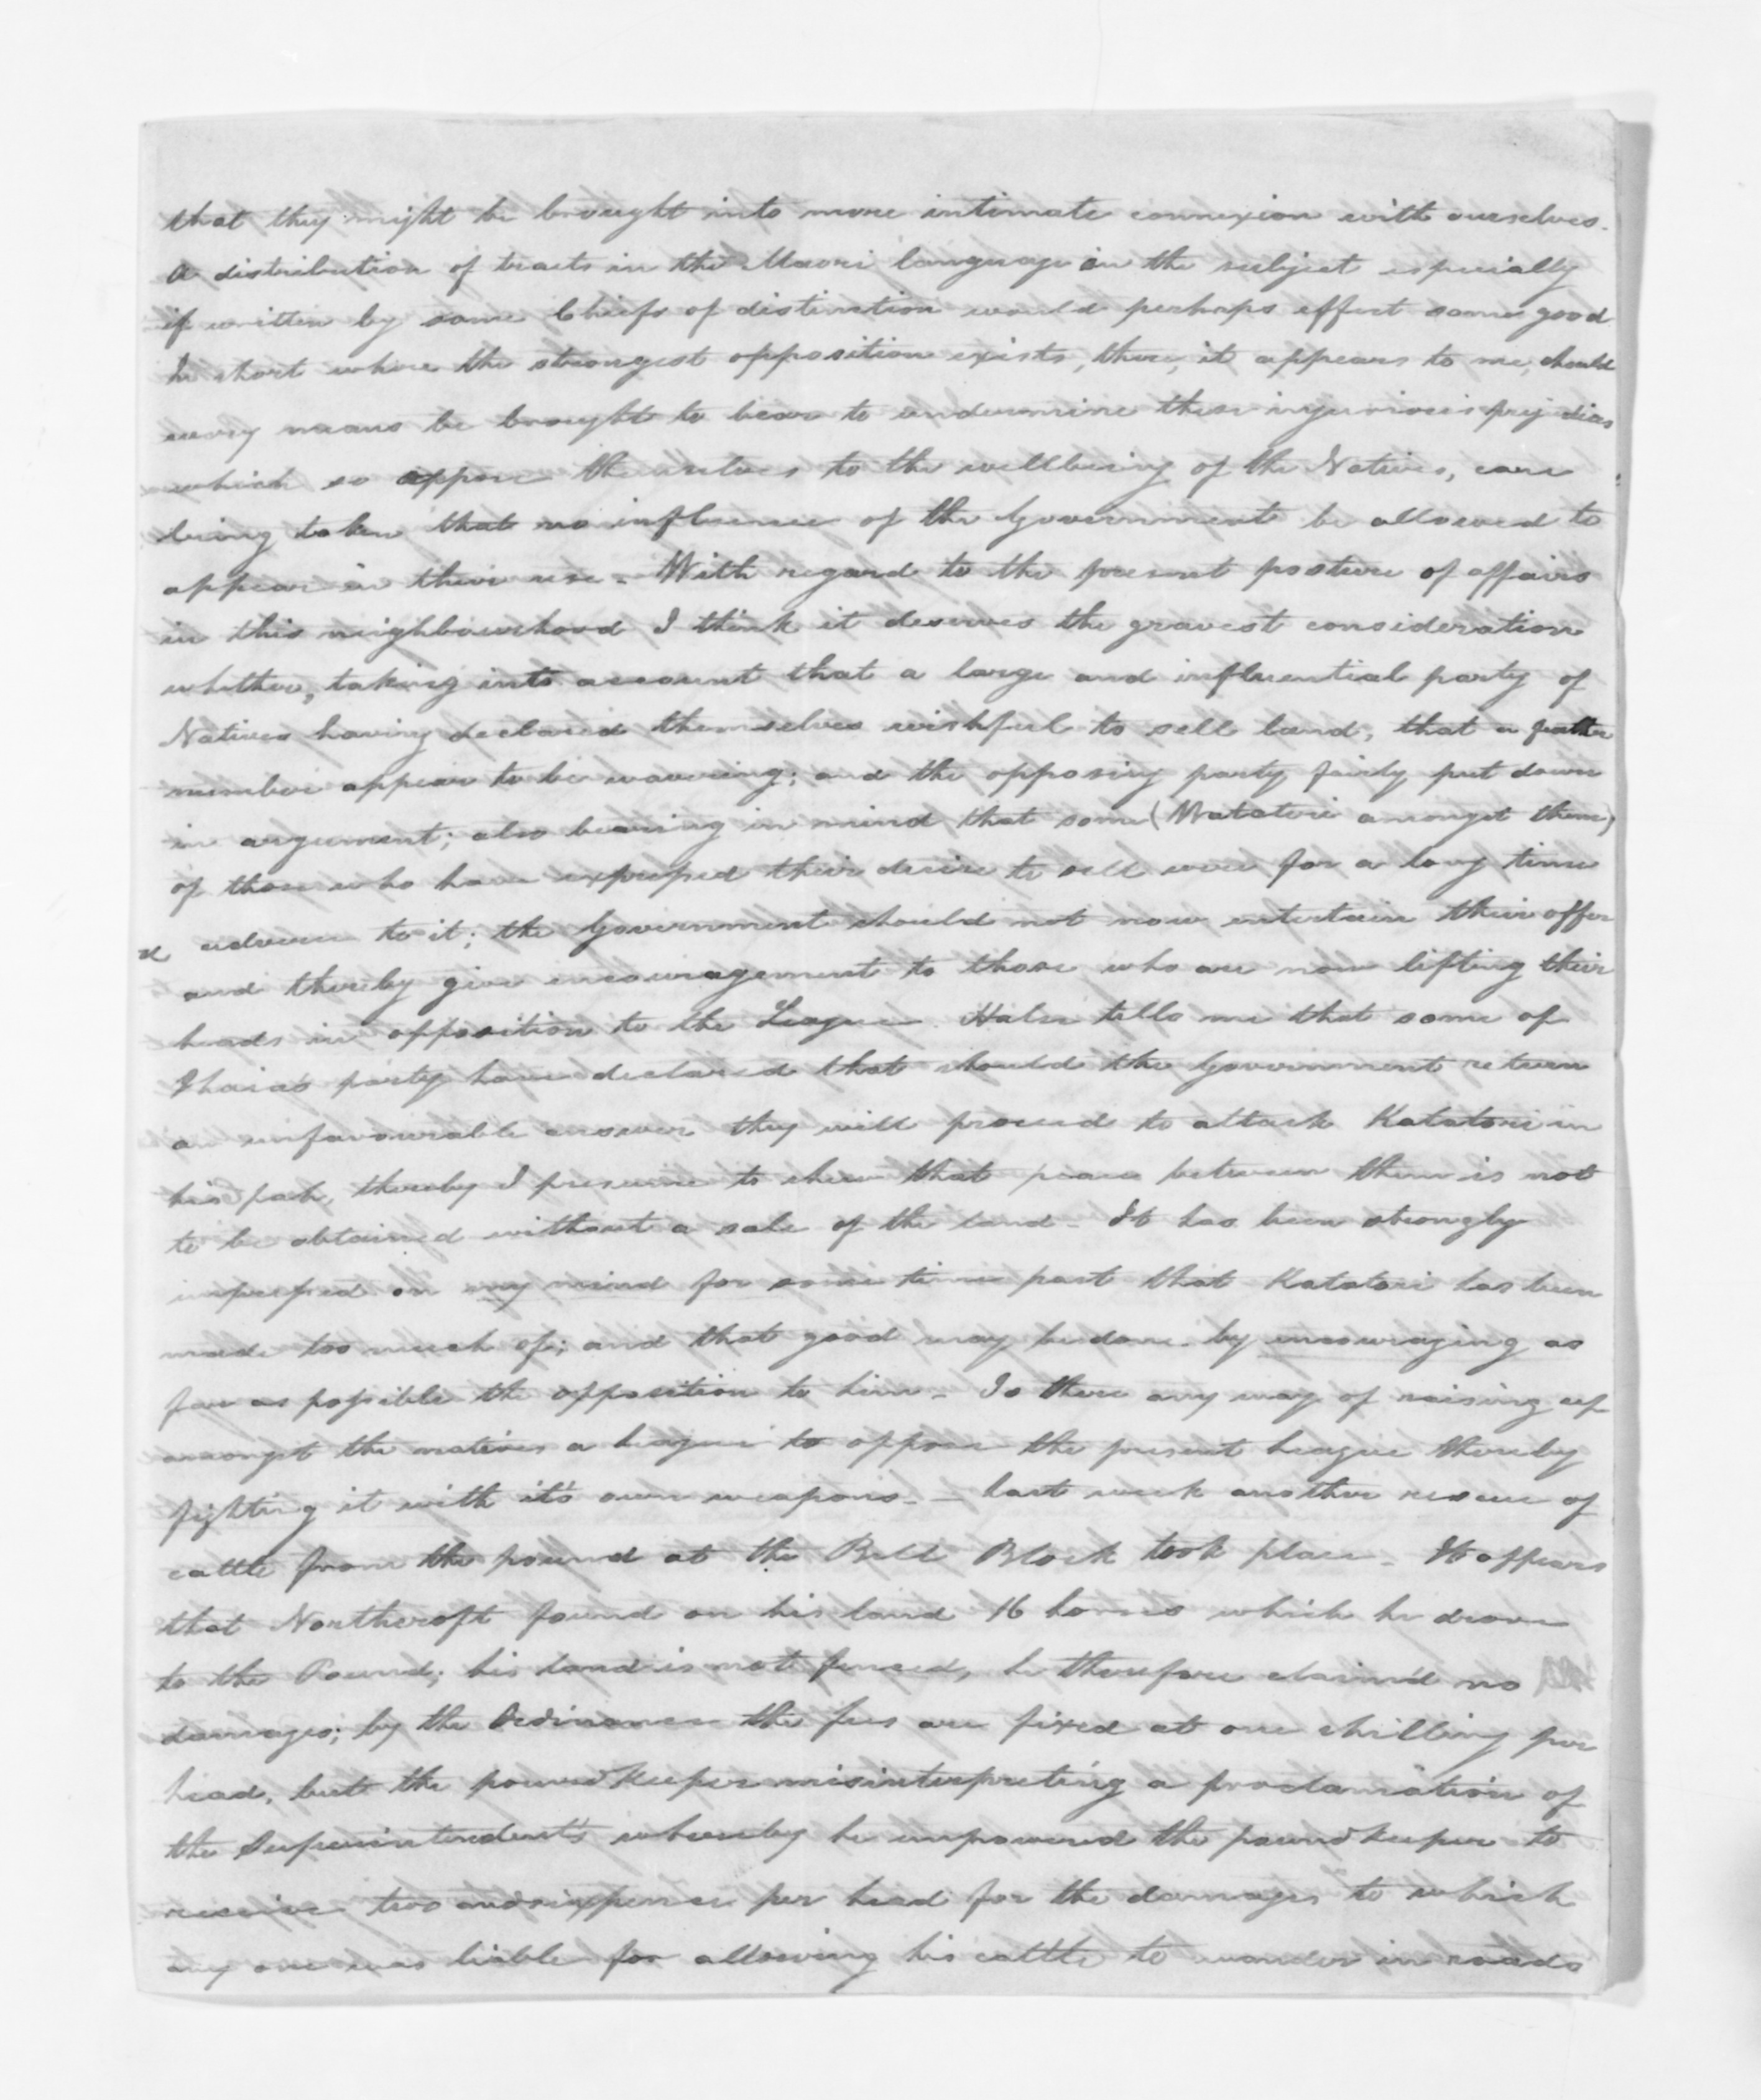 that they might be brought into more intimate connexion with ourselves.
A distribution of tracts in the Maori language on the subject especially
if written by some Chiefs of distinction would perhaps effect some good
In short where the strongest opposition exists, there, it appears to me, should
every means be brought to bear to undermine these injurious prejudices
which so oppose themselves to the wellbeing of the Natives, care
being taken that no influence of the Government be allowed to
appear in their use - With regard to the present posture of affairs
in this neighbourhood I think it deserves the gravest consideration
whether, taking into account that a large and influential party of
Natives having declared themselves wishful to sell land, that a further
number appear to be wavering; and the opposing party fairly put down
in argument; also bearing in mind that some (Watatori amongst them)
of those who have expressed their desire to sell were for a long time
x adverse to it; the Government should not now entertain their offer
and thereby give encouragement to those who are now lifting their
heads in opposition to the League. Halse tells me that some of
Ihaia's party have declared that should the Government return
an unfavourable answer they will proceed to attack Katatori in
his pah, thereby I presume to shew that peace between them is not
to be obtained without a sale of the land - It has been strongly
impressed on my mind for some time past that Katatori has been
made too much of; and that good may be done by encouraging as
far as possible the opposition to him - Is there any way of raising up
amongst the natives a league to oppose the present league thereby
fighting it with it's own weapons. - Last week another rescue of
cattle from the pound at the Bell Block took place - It appears
that Northcroft found on his land 16 horses which he drove
to the Pound; his land is not fenced, he therefore claim'd no
damages; by the Ordinance the fees are fixed at one shilling per
head, but the poundkeeper misinterpreting a proclamation of
the Superintendent's whereby he empowered the poundkeeper to
receive two and sixpence per head for the damages to which
any one was liable for allowing his cattle to wander in roads